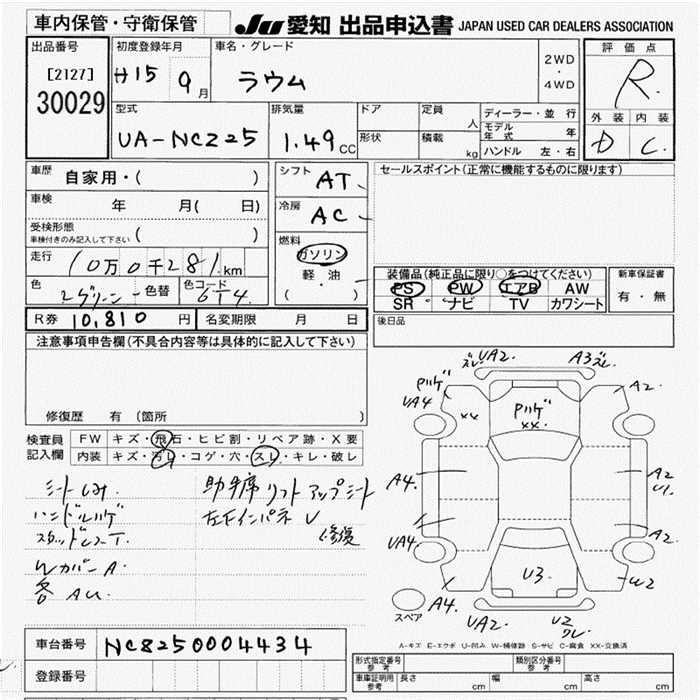 車内保管・守衛保管
JU 愛知 出品申込書 JAPAN USED CAR DEALERS ASSOCIATION
出品番号
[2127]
30029
初度登録年月
H15 9月
車名・グレード
ラウム
2WD
・
4WD
評価点
R
外装 内装
D C
型式
UA-NCZ25
排気量
1.49 CC
ドア
形状
定員
人
積載
kg
ディーラー・並行
モデル年式 年
ハンドル 左・右
車歴
自家用・( )
車検 年 月( 日)
受検形態
車検付きのみ記入して下さい ( )
走行
10万0千281km
色
色替
色コード
6T4
シフト
AT
冷房
AC
燃料
ガソリン
軽・油
( )
セールスポイント(正常に機能するものに限ります)
装備品(純正品に限り○をつけてください)
PS PW エアB AW
SR ナビ TV カワシート
新車保証書
有・無
R券 10,810 円
名変期限 月 日
後日品
注意事項申告欄(不具合内容等は具体的に記入して下さい)
修復歴 有 (箇所 )
検査員
記入欄
FW キズ・飛石・ヒビ割・リペア跡・X要
内装 キズ・汚レ・コゲ・穴・スレ・キレ・破レ
シートしみ.
ハンドルハゲ
Wカバー A.
各 AU
助手席リフトアップシート
左右インパネ U
修復
ズレ UA2.
A3ズレ
Pハゲ
UA4
××
Pハゲ
××.
A2.
A4.
A2
U1.
UA4.
A2.
U3
W2
A4.
UA2.
U2
スペア
A-キズ E-エクボ U-凹み W-補修跡 S-サビ C-腐食 XX-交換済
車台番号 NCZ250004434
登録番号
形式指定番号
参考
類別区分番号
参考
車庫証明用
参考
長さ cm
幅 cm
高さ cm